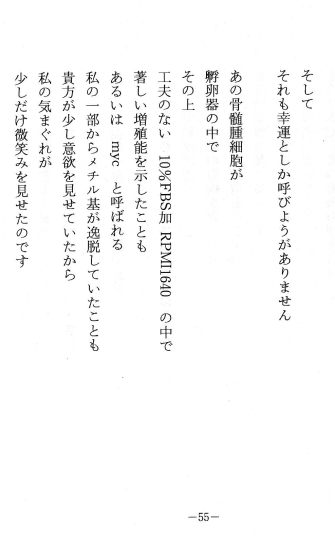 そして
それも幸運としか呼びようがありません
あの骨髄腫細胞が
孵卵器の中で
その上
工夫のない　10%FBS加 RPMI1640　の中で
著しい増殖能を示したことも
あるいは　myc　と呼ばれる
私の一部からメチル基が逸脱していたことも
貴方が少し意欲を見せていたから
私の気まぐれが
少しだけ微笑みを見せたのです
—55—